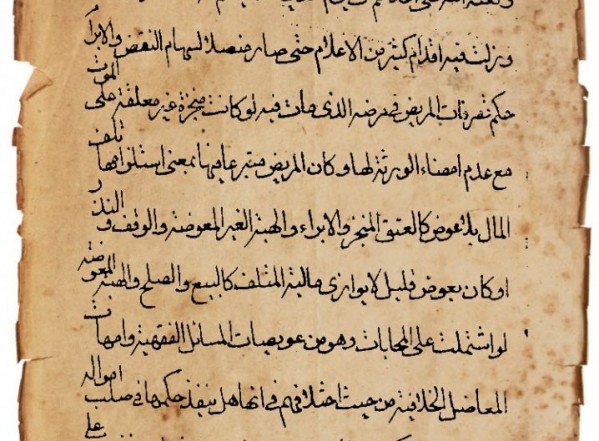 وزلت فيه اقدام كثير من الاعلام حتى صار منصلا لسهام النقض والابرام
حكم تصرفات المريض فى مرضه الذى مات فيه لو كانت منجزة غير معلقة على الموت
مع عدم امضاء الورثة لها وكان المريض متبرعا بها بمعنى استلزامها تلف
المال بلا عوض كالعتق المنجز والابراء والهبة الغير المعوضة والوقف و النذر
او كان بعوض قليل لا يوازى مالية المتلف كالبيع والصلح والهبة المعوضة
لو اشتملت على المحابات وهو من عويصات المسائل الفقهية وامهات
المعاضل الخلافية من حيث اختلافهم فى انها هل ينفذ حكمها فى صلب امواله